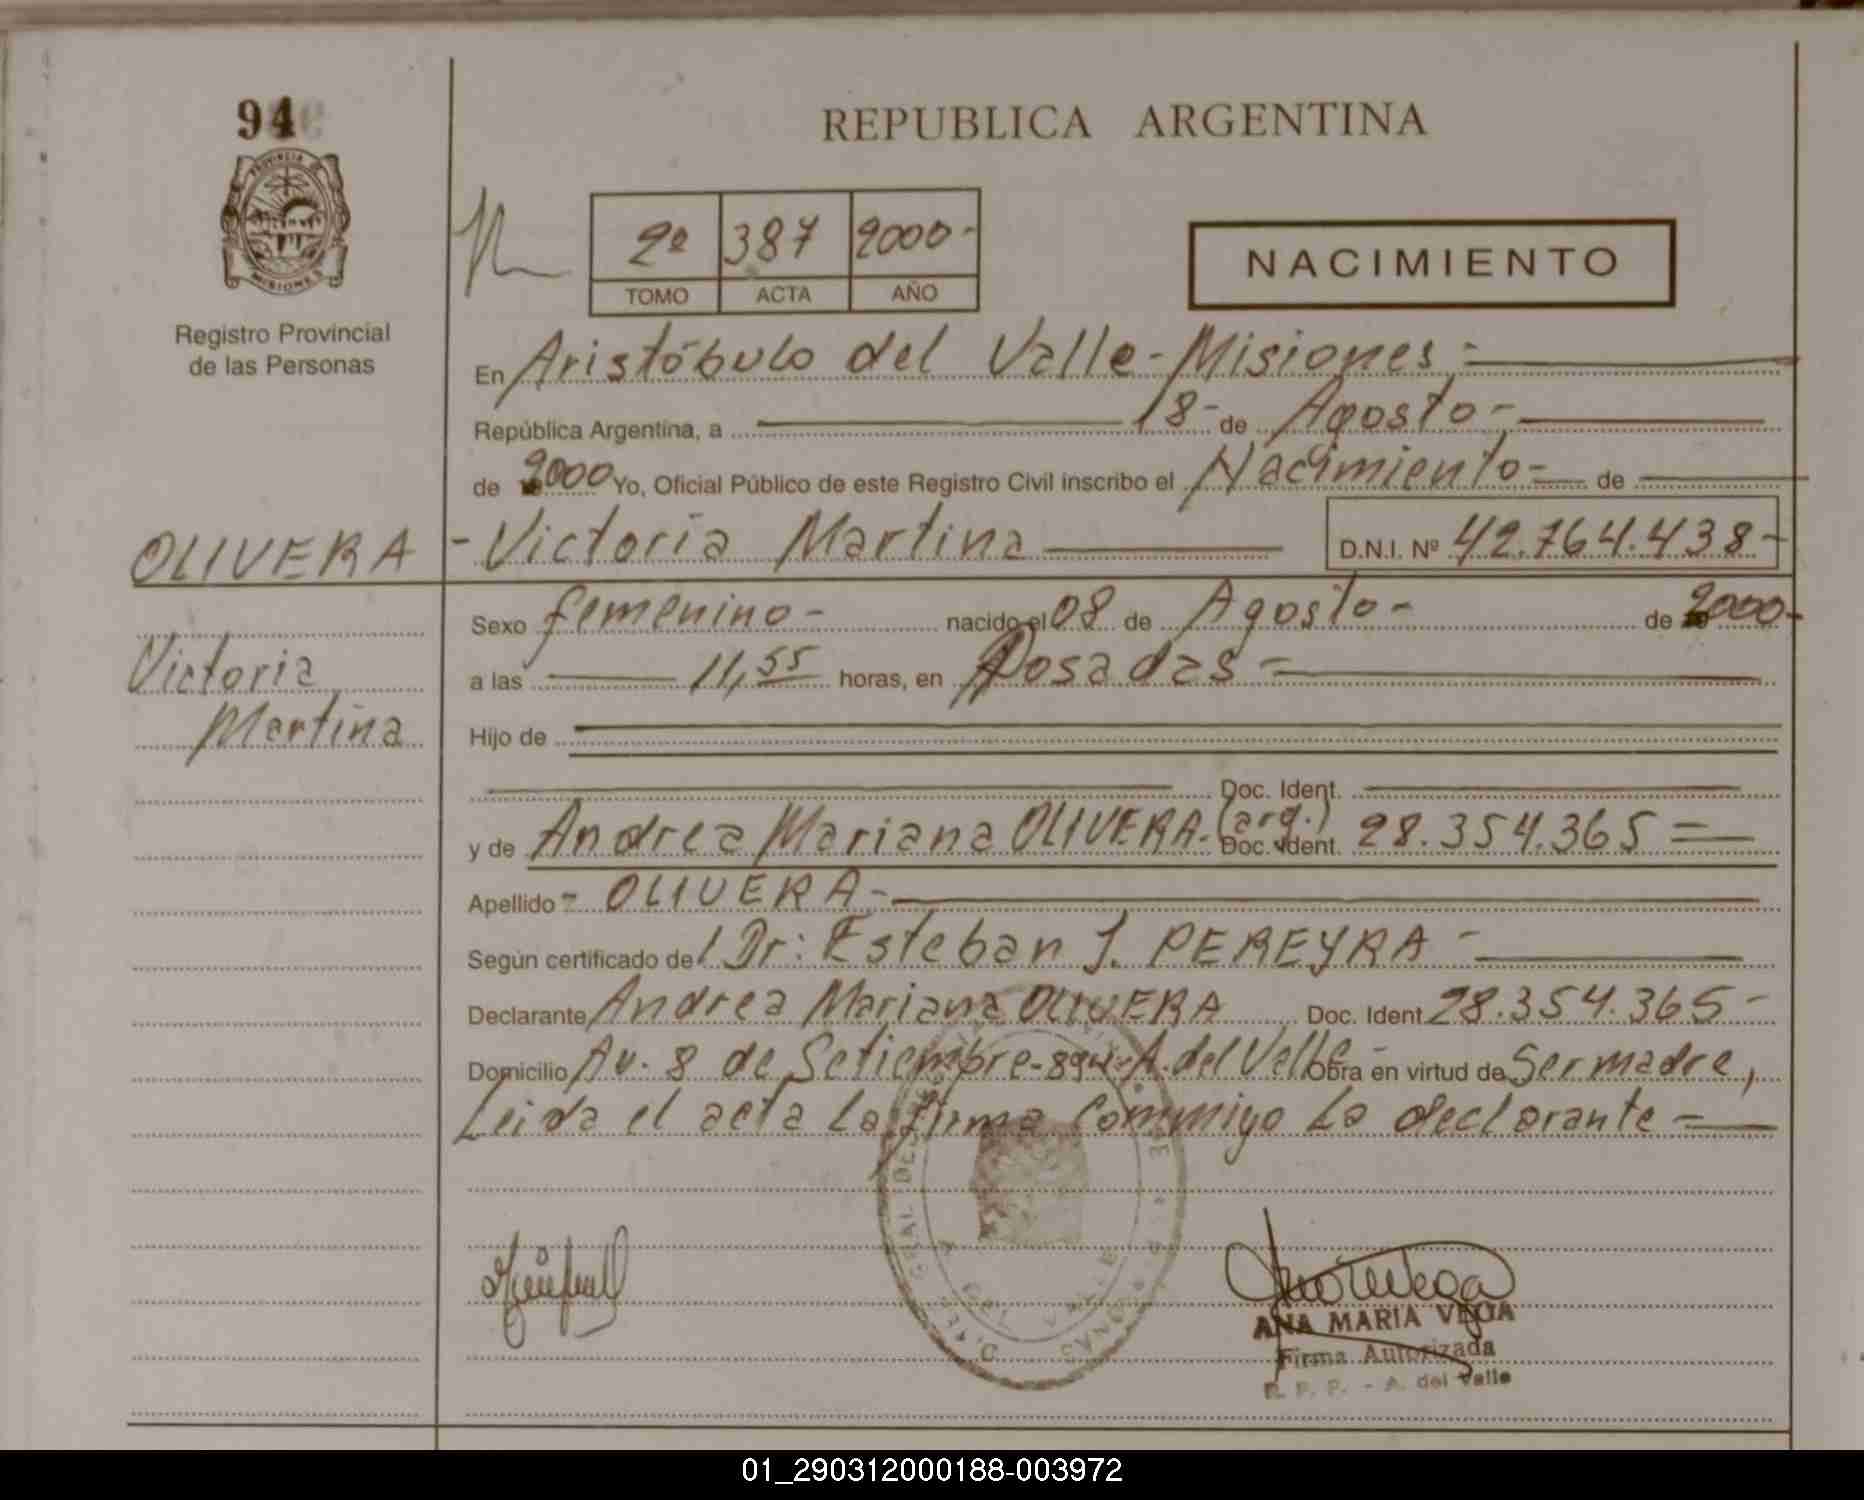 94
PROVINCIA DE
MISIONES
Registro Provincial
de las Personas
OLIVERA
Victoria
Martina
REPUBLICA ARGENTINA
2º 387 2000-
TOMO ACTA AÑO
NACIMIENTO
En Aristóbulo del Valle - Misiones -
República Argentina, a 18- de Agosto -
de 2000 Yo, Oficial Público de este Registro Civil inscribo el Nacimiento - de
- Victoria Martina D.N.I. Nº 42.764.438-
Sexo femenino - nacido el 08 de Agosto - de 2000-
a las 11,55 horas, en Posadas -
Hijo de
Doc. Ident.
y de Andrea Mariana OLIVERA - (arg.) Doc. Ident. 28.354.365 =
Apellido - OLIVERA -
Según certificado del Dr: Esteban J. PEREYRA -
Declarante Andrea Mariana OLIVERA Doc. Ident 28.354.365 -
Domicilio Av. 8 de Setiembre - 894 - A. del Valle - Obra en virtud de Ser madre,
Leida el acta La firma Commigo La declarante -
ANA MARIA VEGA
Firma Autorizada
R. P. P. - A. del Valle
01_290312000188-003972